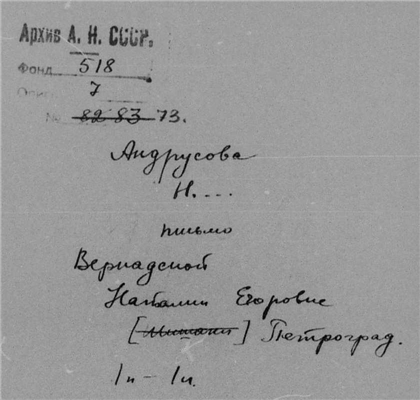 Архив А. Н. СССР.
Фонд 518
Опись 7
№ 82 83 73.
Андрусова
Н. ...
письмо
Вернадской
Наталии Егоровне
[] Петроград.
1п – 1л.